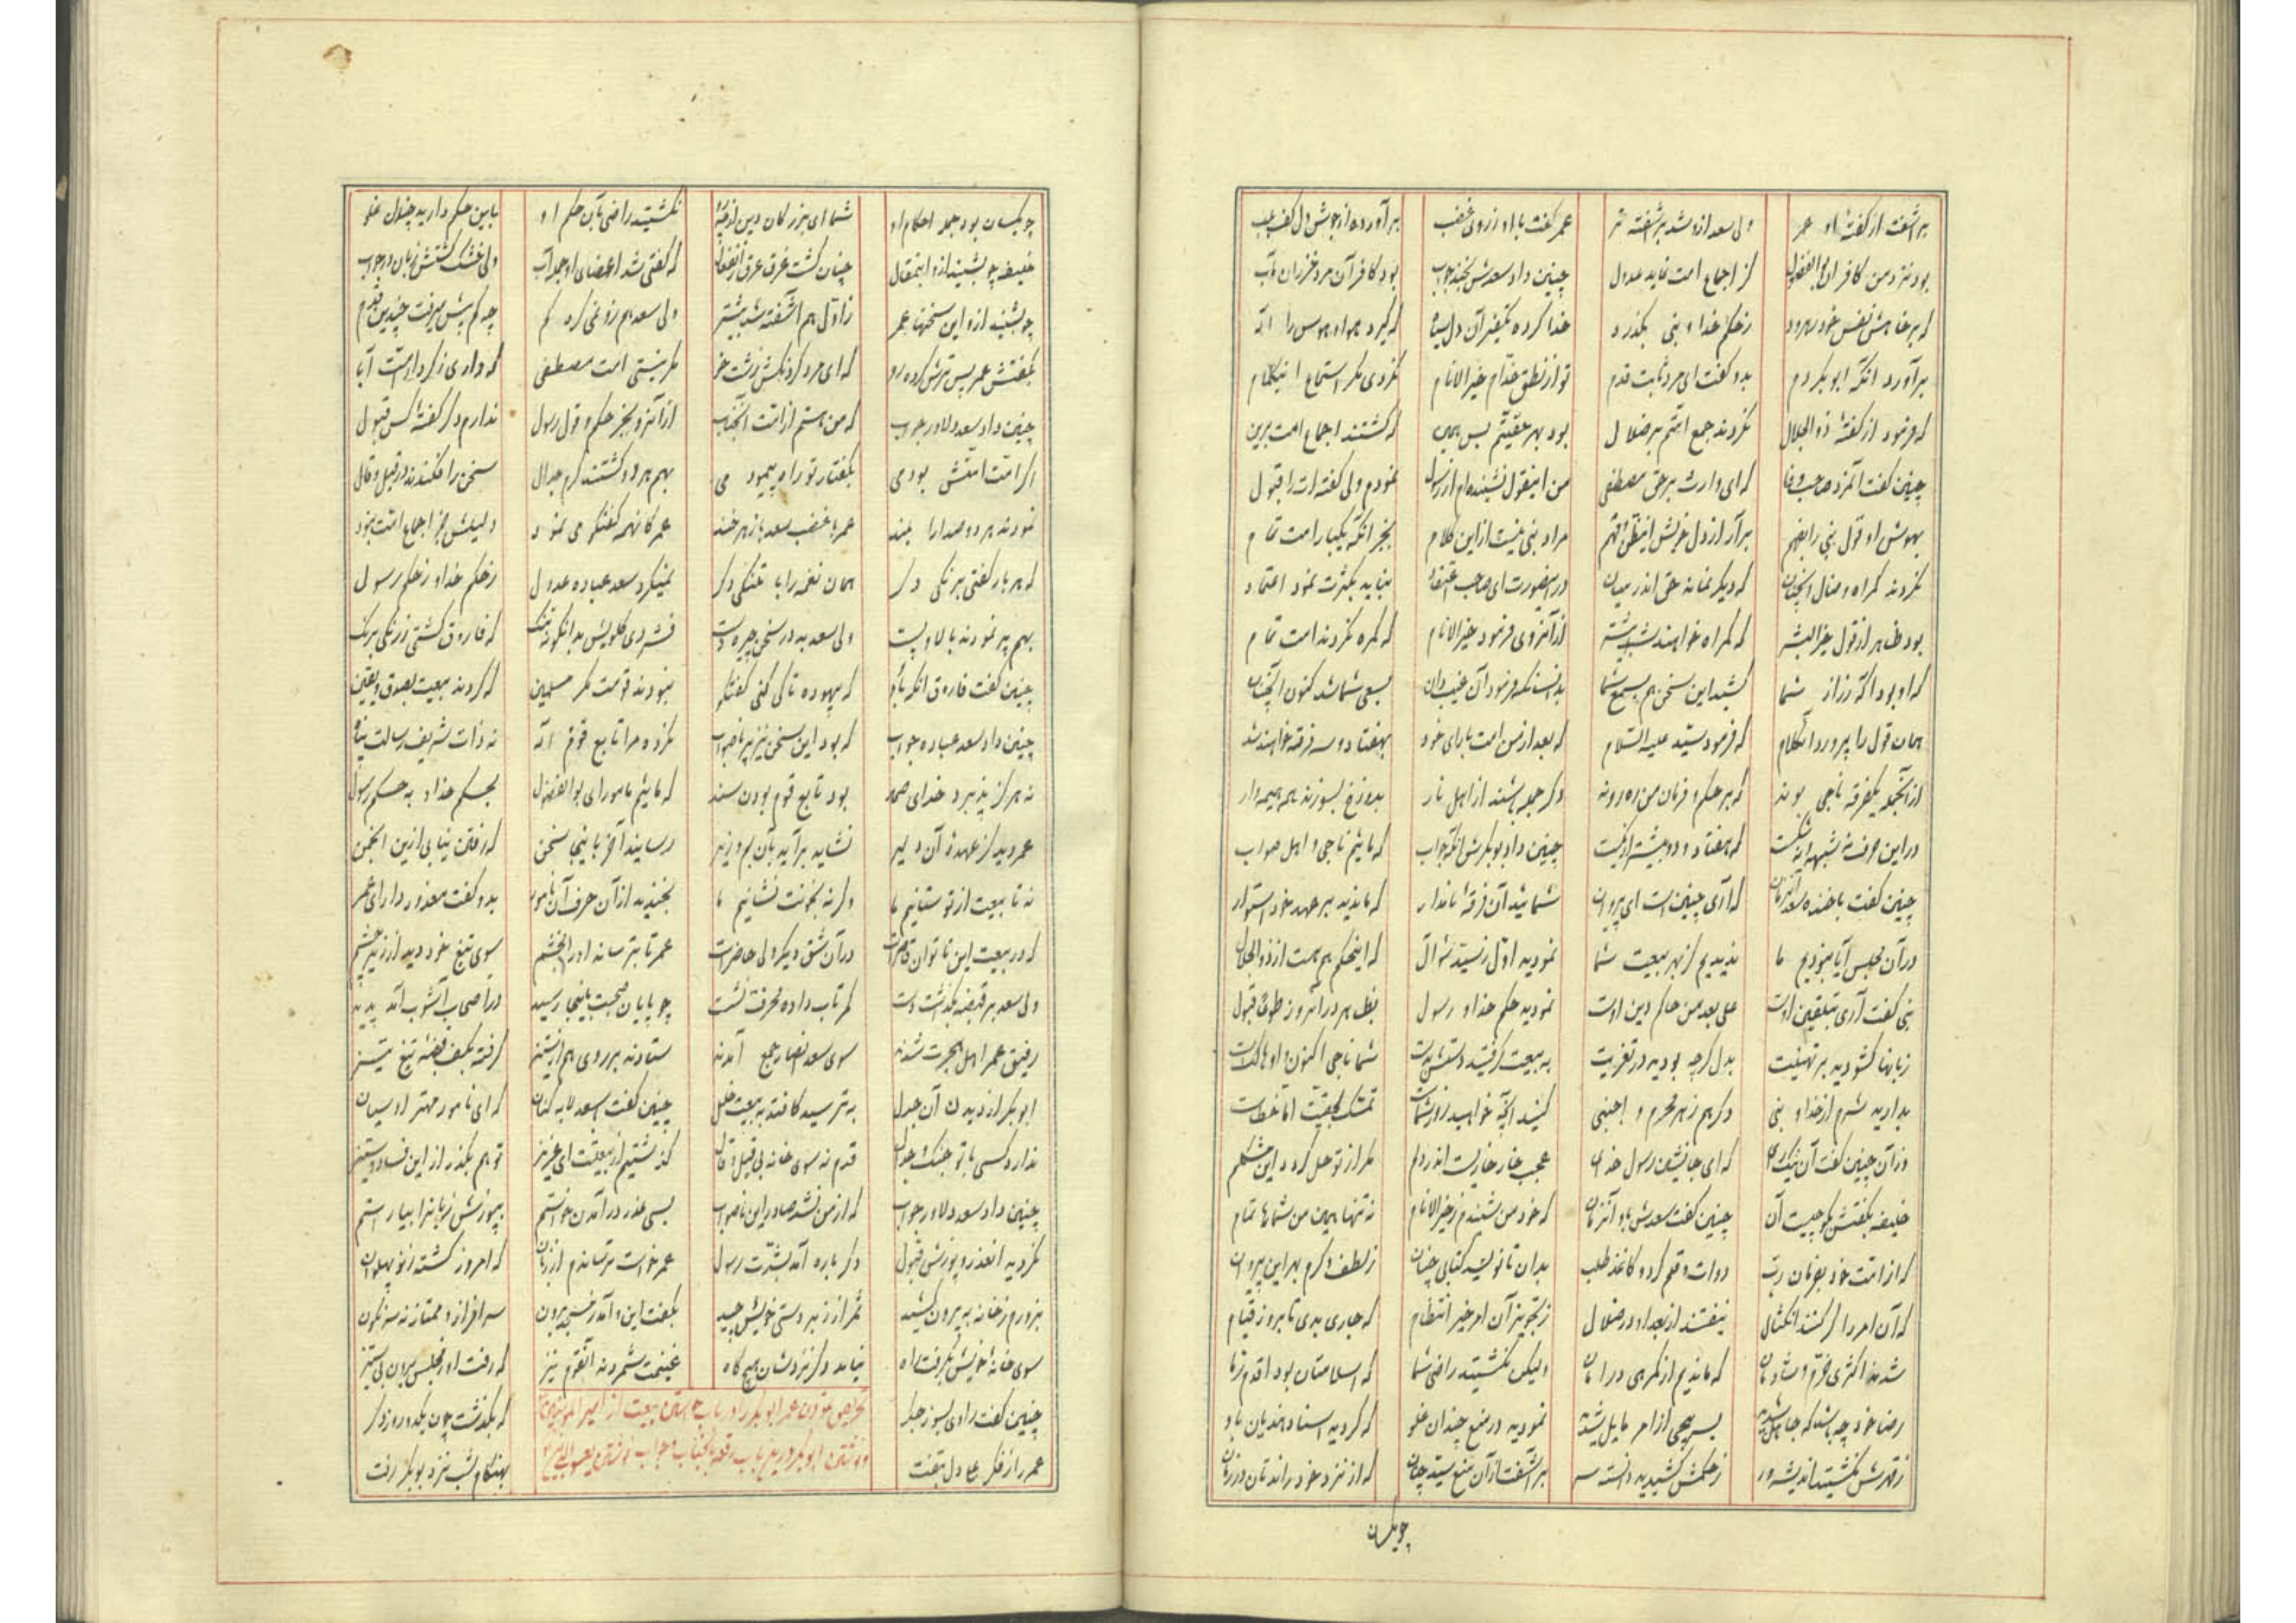 برآشفت از گفتهٔ او عمر ولی سعد ازو شد برآشفته تر عمر گفت با او ز روی غضب برآورده از جوش دل کف بلب
بود نزد من کافر آن بوالفضول کز اجماع امت نماید عدول چنین داد سعدش بخنده جواب بود کافر آن مرد
که بر خواهش نفس خود رهرود ز حکم خدا و نبی بگذرد خدا کرده تکفیر آن دل سیاه که گیرد هوا و هوس را اله
برآورد آنگه ابوبکر دم بدو گفت ای مرد ثابت قدم تو از نطق خیر الانام نکردی مگر استماع این کلام
که فرمود از گفتهٔ ذوالجلال نگردند جمع امتم بر ضلال بود بهر حقیتم بس همین که گشتند اجماع امت برین
چنین گفت آنمرد صاحب وفا که ای وارث برحق مصطفی من اینقول نشنیده‌ام از رسول نمودم ولی گفته‌ات را قبول
بهوش او قول نبی را بفهم برآر از دل خویش این ظن و وهم مراد نبی نیست از این کلام بجز آنکه یکبار امت تمام
نگردند گمراه و ضال آنچنان که دیگر نماند حق اندر میان در اینصورت ای صاحب نباید بکثرت نمود اعتماد
بود ظاهر از قول خیر البشر که گمراه خواهند شد بیشتر از آنروی فرمود خیر الانام که گمره نگردند امت تمام
که او بود آگه ز راز شما کشید این سخن هم بسمع شما بدانسانکه فرمود آن غیب‌دان بسعی شما شد کنون آنچنان
همان قول را پیرو رد کلام که فرمود سید علیه السلام که بعد از من امت بارای خود بهفتاد و سه فرقه خواهند شد
از آنجمله یکفرقه ناجی بوند که بر حکم و فرمان من ره روند دگر جمله باشند از اهل نار بدوزخ بسوزند همه هیمه‌وار
در این حرف نه شبهه و نه شکست که هفتاد و دو بیشتر از یکست چنین داد بوبکرش آنگه جواب که مائیم ناجی و اهل صواب
چنین گفت با خنده سعد آنزمان که آری چنین است ای پیروان شمائید آن فرقهٔ نامدار که ماندید بر عهد خود استوار
در آن مجلس آیا نبودیم ما ندیدیم از بهر بیعت شما نمودید اول ز سید سؤال که اینحکم هم هست از ذوالجلال
نبی گفت آری بتلقین اوست علی بعد من حاکم دین اوست نمودید حکم خدا و رسول بظاهر در آنروز طوعا قبول
زبانها گشودید بر تهنیت بدل گرچه بودید در تعزیت به بیعت گرفتید دستش بدست شما ناجی اکنون و او هالکست
بدارید شرم از خدا و نبی دگر هم ز هر محرم و اجنبی کنید آنچه خواهید زور شماست تمسک بحقیت اما خطاست
وز آن چنین گفت آن نیک رای که ای جانشین رسول خدای عجب خار خاریست اندر دلم مگر از تو حل گردد این مشکلم
خلیفه بگفتش بگو چیست آن چنین گفت سعدش به او آنزمان که خود من شنیدم ز خیر الانام نه تنها همین من شماها تمام
که از امت خود بفرمان رب دوات و قلم کرد و کاغذ طلب بدان تا نویسد کتابی چنان ز لطف و کرم بهر این پیروان
که آن امر را گر کنند امتثال نیفتند از بعد او در ضلال ز تجویز آن امر خیر انتظام که جاری بدی تا بروز قیام
شدند اکثری خرم و شادمان که ماندیم از گمرهی در امان ولیکن نگشتید راضی شما که اسلامتان بود اقدم ز ما
رضا خود چه باشد که جاهل شدید بسر پیچی از امر مایل شدید نمودید در منع چندان غلو که کردید اسناد هذیان به او
ز قدرش نگشتید اندیشه ور ز حکمش کشیدید دانسته سر برآشفت از آن منع سید چنان که از نزد خود راندتان در زمان
چو یکسان
چو یکسان بود جمله احکام او شما ای بزرگان دین از چه رو نگشتید راضی بآن حکم او باین حکم دارید چندان غلو
خلیفه چو بشنید ازو اینمقال چنان گشت غرق عرق ز انفعال که گفتی شد اعضای او جمله آب ولی خشک گشتش زبان در جواب
چو بشنید ازو این سخنها عمر ز اول هم آشفته شد بیشتر ولی سعد هم رو نمی کرد کم چه کم پیش میرفت چندین قدم
بگفتش عمر پس ترش کرده رو که ای مرد گردنکش زشت خو مگر نیستی امت مصطفی که داری ز کردار امت ابا
چنین داد سعد دلاور جواب که من هستم از امت آنجناب از آنرو بجز حکم و قول رسول ندارم دگر گفتهٔ کس قبول
اگر امت امتش بودمی بگفتار تو راه پیمودمی بهم هر دو گشتند گرم جدال سخن را فکندند در قیل و قال
نمودند هر دو صدا را بلند عمر با غضب سعد با زهرخند عمر کانهمه گفتگو می نمود دلیلش جز اجماع امت نبود
که هر بار گفتی برنگی دگر همان نغمه را با تفنگی دگر نمیکرد سعد عباده عدول ز حکم خدا و ز حکم رسول
بهم پر نمودند بالا و پست ولی سعد بد در سخن چیره دست فشردی گلویش بدانگونه تنگ که فاروق گشتی ز رنگی برنگ
چنین گفت فاروق آنگه به او که بیهوده تا کی کنی گفتگو نبودند قومت مگر مسلمین که کردند بیعت بصدق و یقین
چنین داد سعد عباده جواب که بود این سخن نیز بر ناصواب نکرده مرا تابع قوم اله نه ذات شریف رسالت پناه
نه هرگز پذیرد خدای صمد بود تابع قوم بودن سند که مائیم مامور ای بوالفضول بحکم خدا و به حکم رسول
عمر دید کز عهدهٔ آن دلیر نشاید برآید بآن رسانید آخر باینجا سخن که رفتن نیابی ازین انجمن
نه تا بیعت از تو ستانیم ما وگرنه بخونت نشانیم ما بخندید از آن حرف آن نامور بدو گفت معذور دار ای عمر
که در بیعت این ناتوان قاصرست در آن شق دیگر ولی حاضرست عمر تا بترساند او را بخشم سوی تیغ خود دید از زیر چشم
ولی سعد بر قبضه بگذاشت دست کمر تاب داده نشست چو پایان صحبت باینجا رسید در اصحاب آشوب آمد پدید
رفیق عمر اهل هجرت شدند سوی سعد انصار جمع آمدند ستادند بر روی هم در ستیز گرفته بکف قبضهٔ تیغ تیز
ابوبکر از دیدن آن جدل بترسید کافتد به بیعت خلل چنین گفت با سعد لابه کنان که ای نامور مهتر اوسیان
ندارد کسی با تو جنگ و جدال قدم نه سوی خانه بی قیل و قال گذشتیم از بیعتت ای عزیز تو هم بگذر از این فساد و ستیز
چنین داد سعد دلاور جواب که از من نشد صادر این ناصواب بسی عذر در آمدن خواستم بپوزش زبانرا بیاراستم
نکردید آن عذر و پوزش قبول دگر باره آمد بشدت رسول عمر خواست ترساندم آنزمان که امروز گشته ز نو پهلوان
بزورم ز خانه به بیرون کشید ثمر از زبردستی خویش چید بگفت این و آمد ز مسجد برون سرافراز و ممتاز نه سرنگون
سوی خانهٔ خویش بگرفت راه نیامد دگر نزدشان هیچگاه غنیمت شمردند آنقوم نیز که رفت او ز مجلس برون بی ستیز
تحریص نمودن عمر ابوبکر را در باب خواستن بیعت از امیر المؤمنین
و نوشتن ابوبکر درین باب رقعه بآنجناب و جواب نوشتن
چنین گفت راوی بسوز جگر که بگذشت چون یکدو روز دگر
عمر را ز فکر بهنگام شب نزد بوبکر رفت